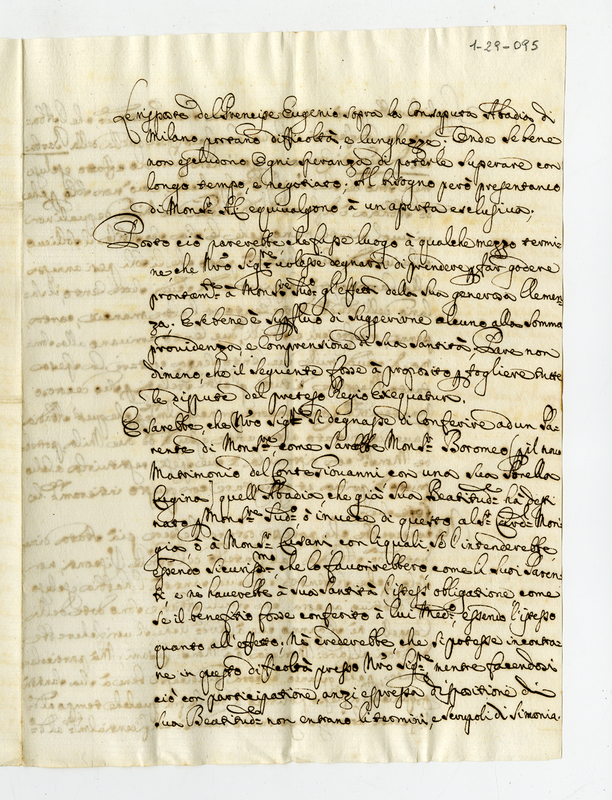 1-29-095
Le risposte del Prencipe Eugenio sopra la consaputa Abadia di
Milano portano difficoltà, e lunghezze. Onde se bene
non escludono ogni speranza di poterle superare con
longo tempo, e negotiato; Al bisogno però presentaneo
di Monsr. Al. equivalgono à un aperta esclusiva;
Posto ciò parerebbe che fusse luogo à qualche mezzo termi=
ne, che Nro. Sigre. volesse degnarsi di prendere p far godere
prontamte. à Monsre. sudo. gl'effetti della sua generosa Clemen=
za. E se bene è superfluo di suggerirne alcuno alla somma
providenza, e comprensione di Sua Santità, Pare non
dimeno, che il seguente fosse à proposito p togliere tutte
le dispute del preteso Regio Exequatur.
E sarebbe, che Nro. Sigre. si degnasse di conferire ad un Pa=
rente di Monsre., come sarebbe Monsr. Boromeo (p il novo
Matrimonio del Conte Giovanni con una sua Sorella
Cugina) quell'Abadia che già Sua Beatitude. ha desti
nato p Monsre. sudo. ò invece di questo al Sr. Card. Mon=
gio, ò à Monsr. con li quali se l'intenderebbe,
essendo sicurissmo., che lo favorirebbero, come li suoi Paren=
ti e nè haverebbe à Sua Santità l'istess' obligatione come
se il beneficio fosse conferito à lui medo., essendo l'istesso
quanto all'effetto; Nè crederebbe, che si potesse incontra=
re in questo difficoltà presso Nro. Sigre., mentre facendosi
ciò con participatione, anzi espressa dispositione di
sua Beatitude. non entrano li termini, e scrupoli di Simonia.